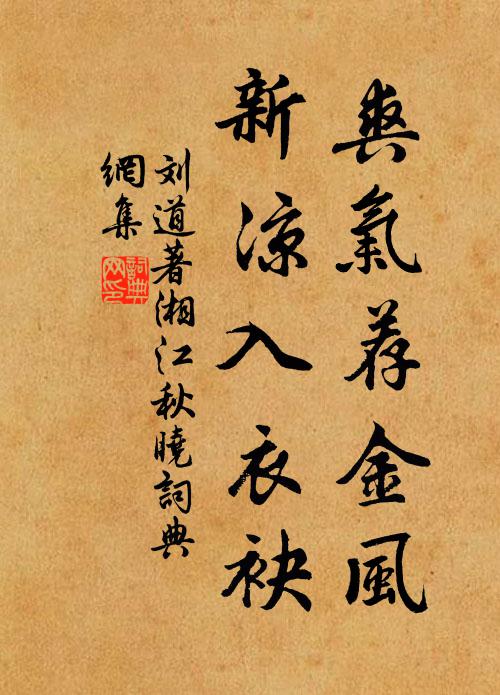 爽氣荐金風
新凉入衣袂
刘道著湘江秋曉詞典
網集
詞典網印